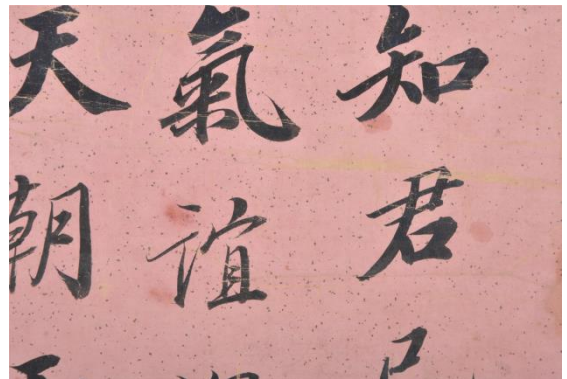 知君
氣誼
天朝